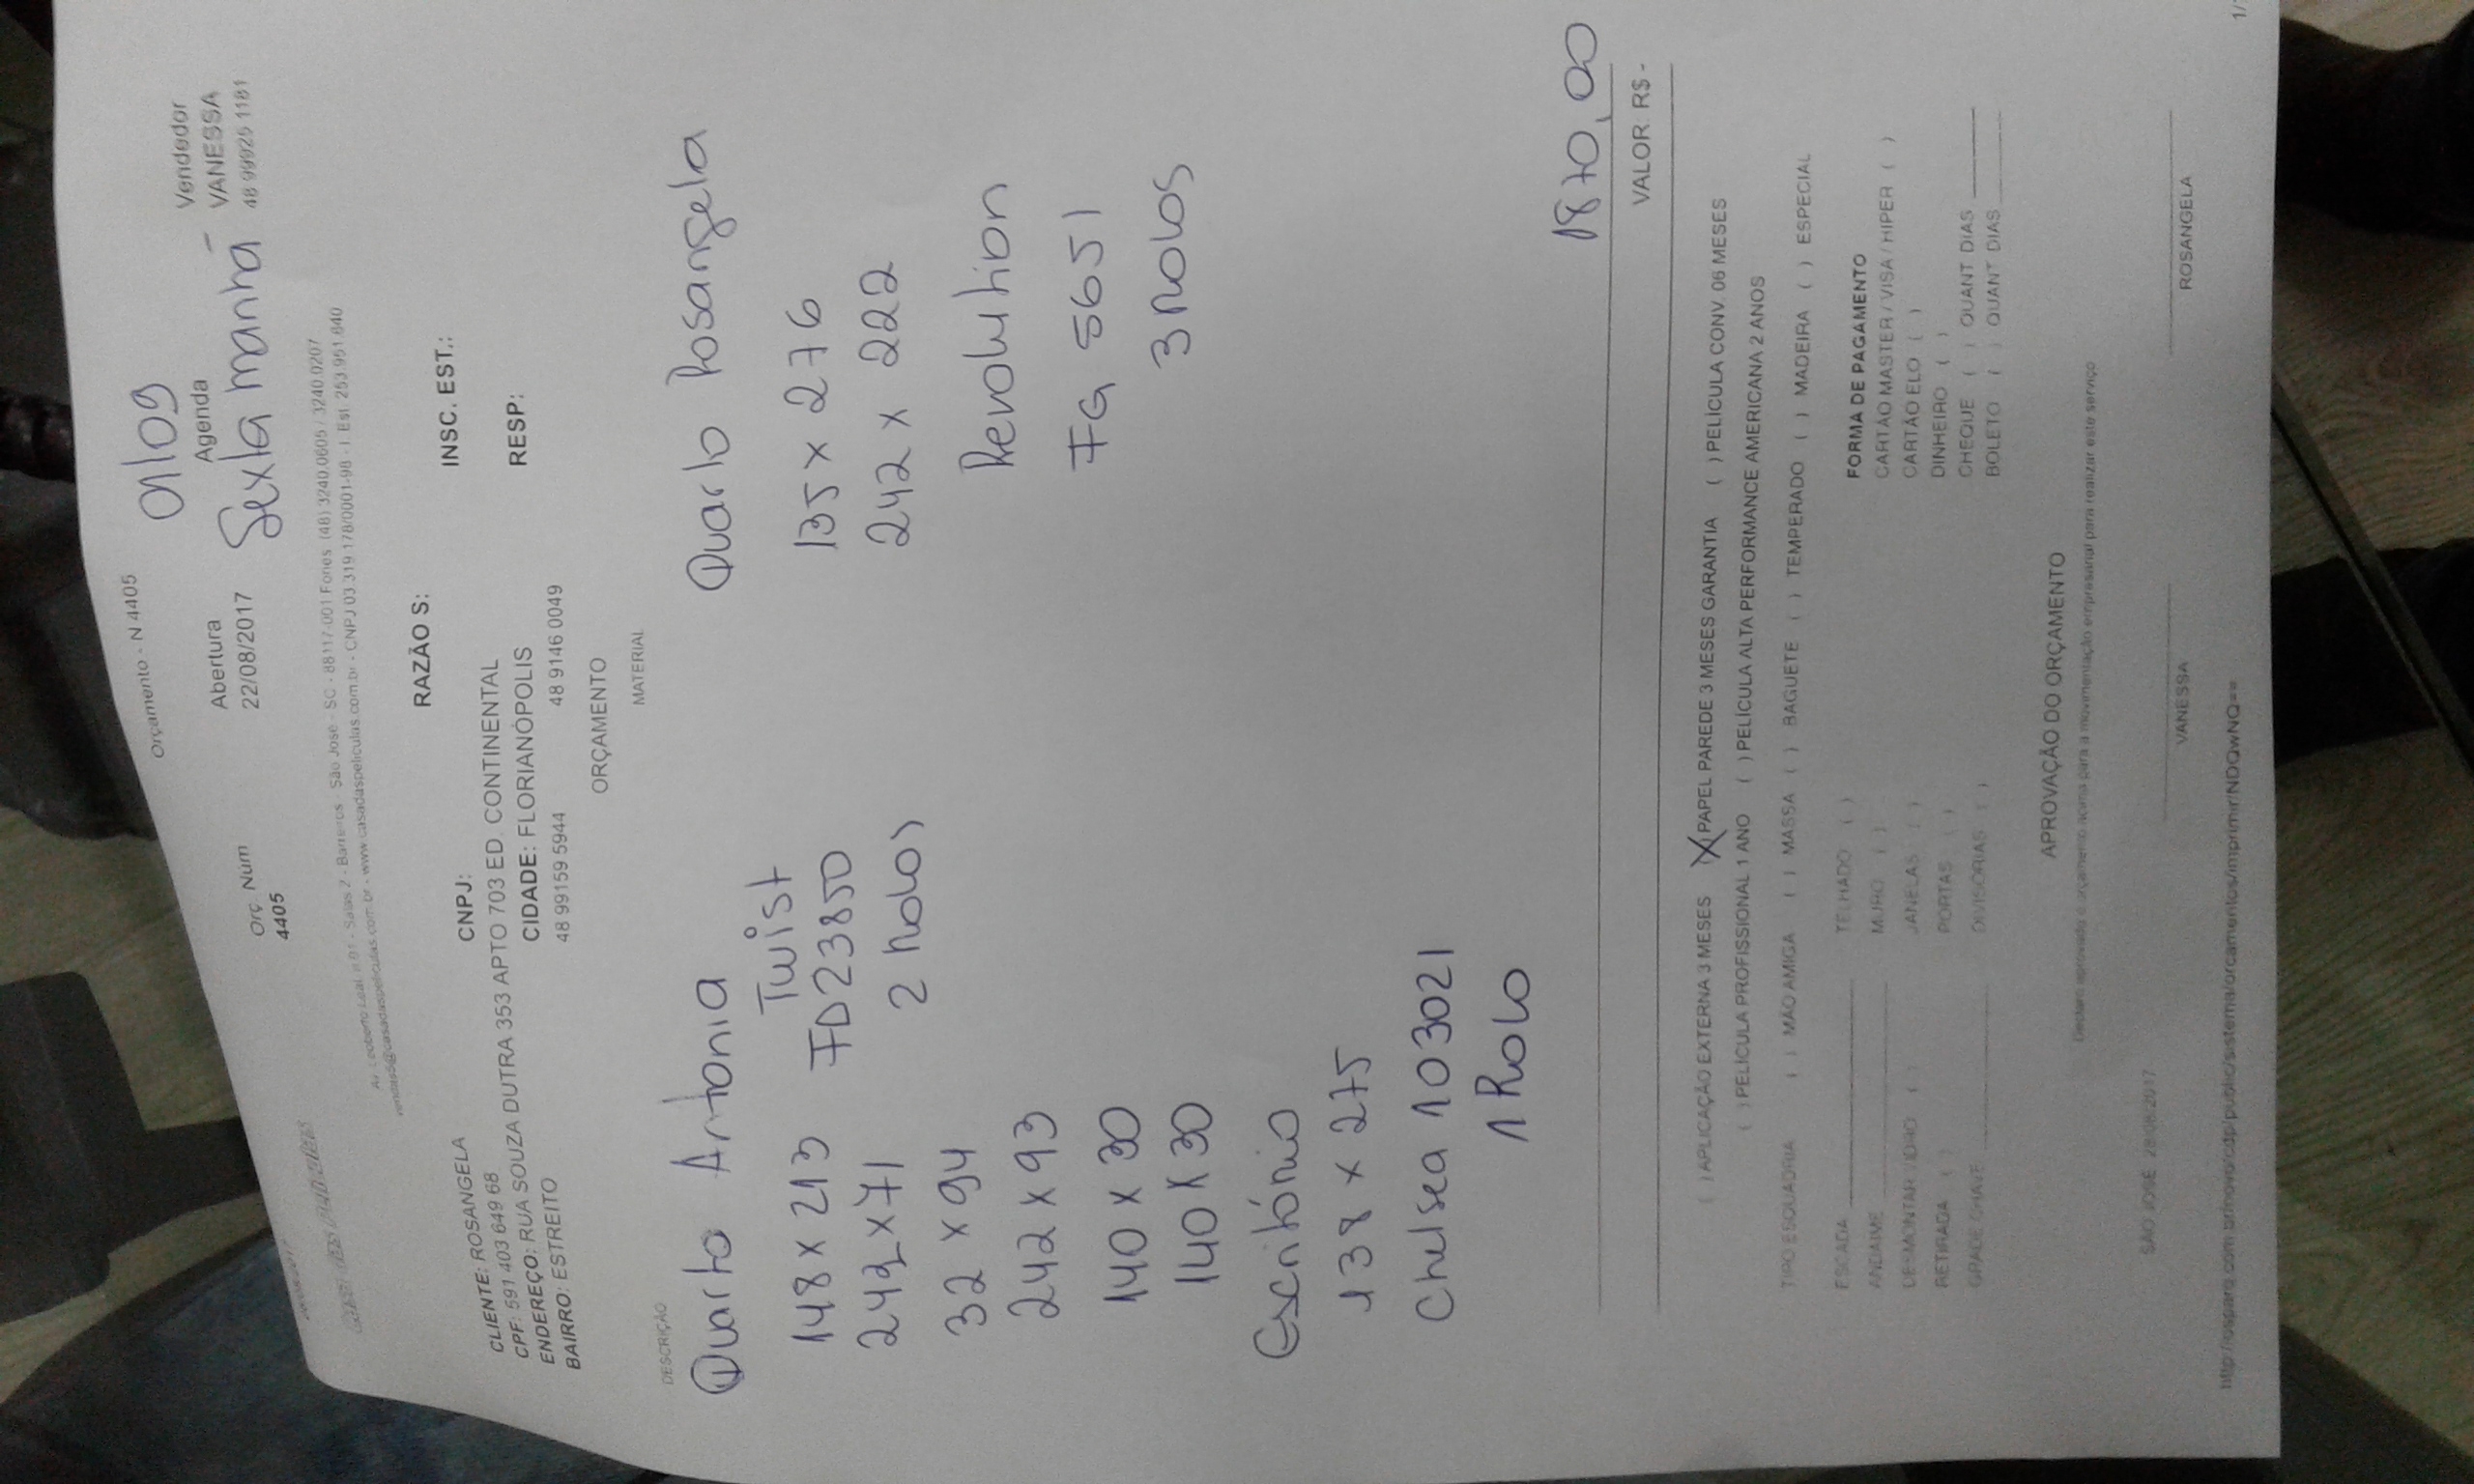 Orçamento - N 4405
01/09
Orç Núm
4405
Abertura
22/08/2017
Agenda
Sexta manhã -
Vendedor
VANESSA
48 99925 1181
Salas 2 - Barreiros - São José - SC - 88117-001 Fones (48) 3240.0605 / 3240.0207
vendas5@casadaspeliculas.com.br - www.casadaspeliculas.com.br - CNPJ 03.319.178/0001-98 - I. Est 253.951.640
CLIENTE: ROSANGELA
CNPJ:
RAZÃO S:
INSC. EST.:
CPF: 591 403 649 68
ENDEREÇO: RUA SOUZA DUTRA 353 APTO 703 ED. CONTINENTAL
RESP:
BAIRRO: ESTREITO
CIDADE: FLORIANÓPOLIS
48 99159 5944
48 9146 0049
ORÇAMENTO
DESCRIÇÃO
MATERIAL
Quarto Antonia
Twist
148 x 213 FD23850
242 x 71 2 Rolos
32 x 94
242 x 93
140 x 30
140 x 30
Quarto Rosangela
135 x 276
242 x 222
Revolution
FG 5651
3 Rolos
Escritório
138 x 275
Chelsea 103021
1 Rolo
1870,00
VALOR: R$ -
( ) APLICAÇÃO EXTERNA 3 MESES (X) PAPEL PAREDE 3 MESES GARANTIA ( ) PELÍCULA CONV. 06 MESES
( ) PELÍCULA PROFISSIONAL 1 ANO ( ) PELÍCULA ALTA PERFORMANCE AMERICANA 2 ANOS
TIPO ESQUADRIA ( ) MÃO AMIGA ( ) MASSA ( ) BAGUETE ( ) TEMPERADO ( ) MADEIRA ( ) ESPECIAL
ESCADA
TELHADO ( )
FORMA DE PAGAMENTO
ANDAIME
MURO ( )
CARTÃO MASTER / VISA / HIPER ( )
DESMONTAR VIDRO ( )
JANELAS ( )
CARTÃO ELO ( )
RETIRADA ( )
PORTAS ( )
DINHEIRO ( )
GRADE CHAVE
DIVISORIAS ( )
CHEQUE ( ) QUANT DIAS
BOLETO ( ) QUANT DIAS
APROVAÇÃO DO ORÇAMENTO
Declaro aprovado o orçamento acima para a movimentação empresarial para realizar este serviço
SÃO JOSÉ 28/08/2017
VANESSA
ROSANGELA